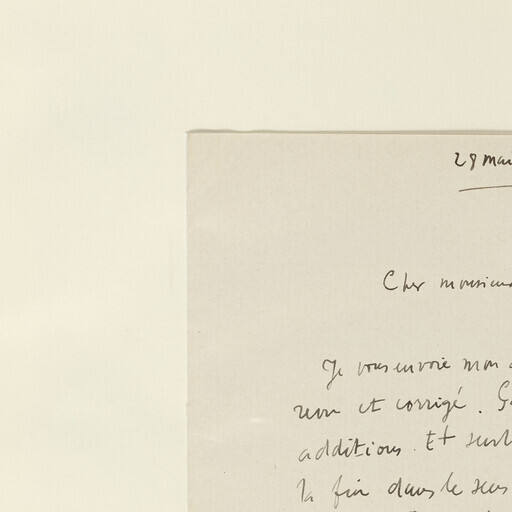 29 mai
Cher monsieur
Je vous envoie mon
revu et corrigé.
additions. Et surt
la fin dans le sens